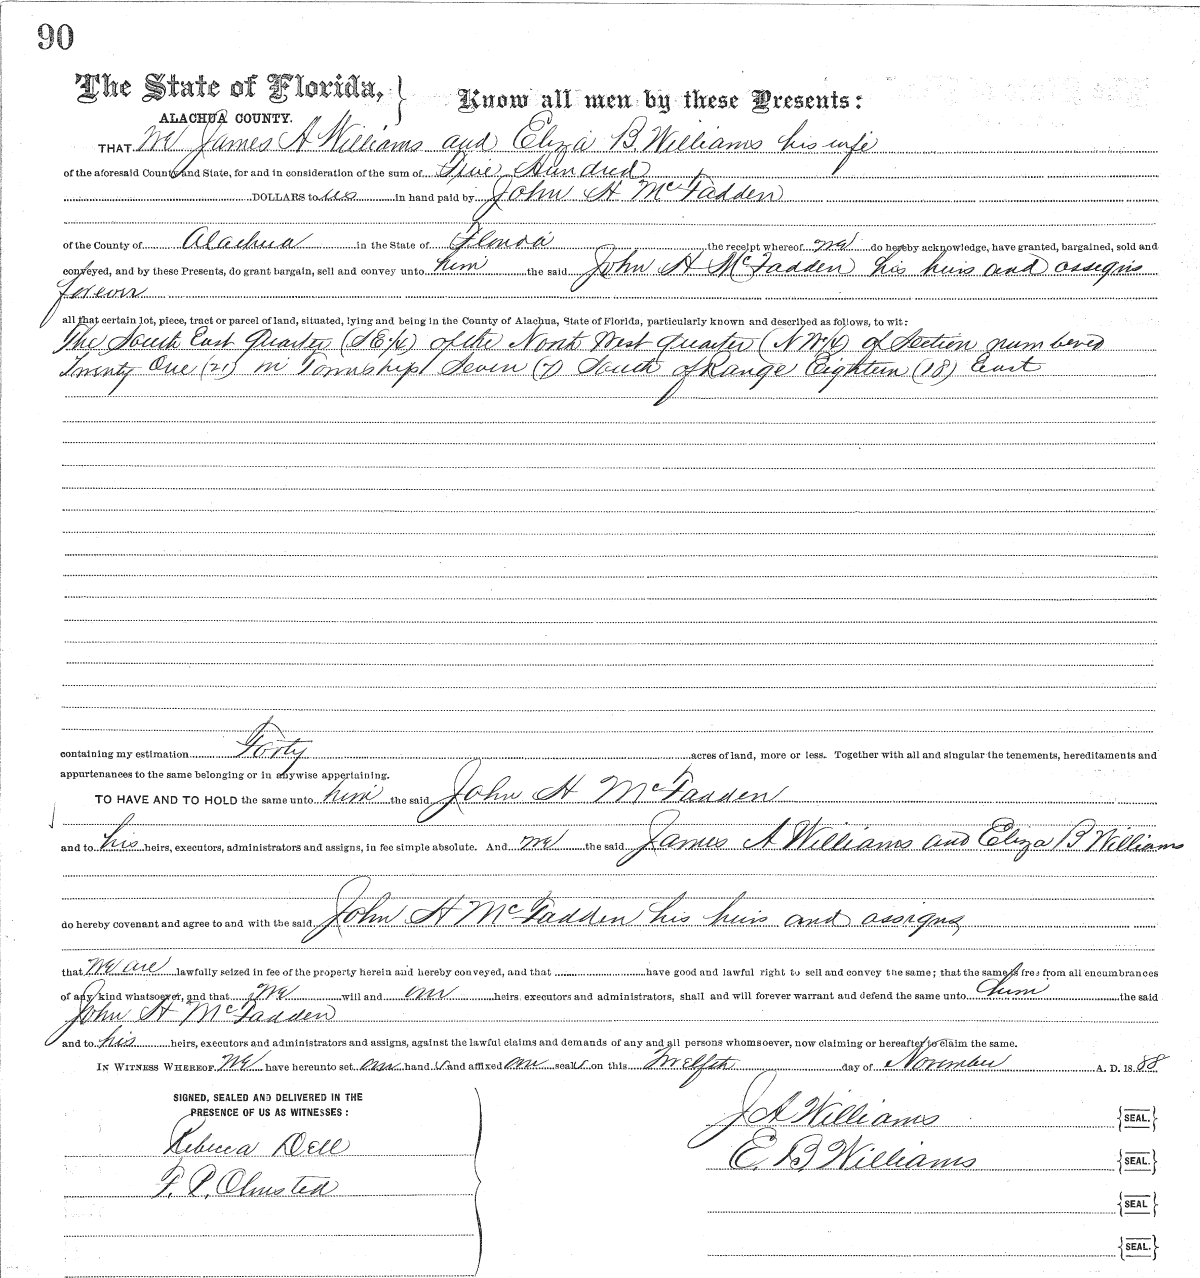 90
The State of Florida, } Know all men by these Presents:
ALACHUA COUNTY.
THAT We James A Williams and Eliza B. Williams his wife
of the aforesaid County and State, for and in consideration of the sum of Five Hundred
DOLLARS to us in hand paid by John H McFadden
of the County of Alachua in the State of Florida the receipt whereof we do hereby acknowledge, have granted, bargained, sold and
conveyed, and by these Presents, do grant bargain, sell and convey unto him the said John H McFadden his heirs and assigns
forever
all that certain lot, piece, tract or parcel of land, situated, lying and being in the County of Alachua, State of Florida, particularly known and described as follows, to wit:
The South East Quarter (SE¼) of the North West Quarter (NW¼) of Section numbered
Twenty One (21) in Township Seven (7) South of Range Eighteen (18) East
containing my estimation Forty acres of land, more or less. Together with all and singular the tenements, hereditaments and
appurtenances to the same belonging or in anywise appertaining.
TO HAVE AND TO HOLD the same unto him the said John H McFadden
and to his heirs, executors, administrators and assigns, in fee simple absolute. And we the said James A Williams and Eliza B Williams
do hereby covenant and agree to and with the said John H McFadden his heirs and assigns
that We are lawfully seized in fee of the property herein and hereby conveyed, and that have good and lawful right to sell and convey the same; that the same is free from all encumbrances
of any kind whatsoever, and that We will and our heirs executors and administrators, shall and will forever warrant and defend the same unto him the said
John H McFadden
and to his heirs, executors and administrators and assigns, against the lawful claims and demands of any and all persons whomsoever, now claiming or hereafter to claim the same.
IN WITNESS WHEREOF We have hereunto set our hand s and affixed our seal s on this Twelfth day of November A. D. 18 88
SIGNED, SEALED AND DELIVERED IN THE
PRESENCE OF US AS WITNESSES:
Rebecca Dell
F. P. Olmsted
J A Williams {SEAL.}
E. B Williams {SEAL.}
{SEAL}
{SEAL.}